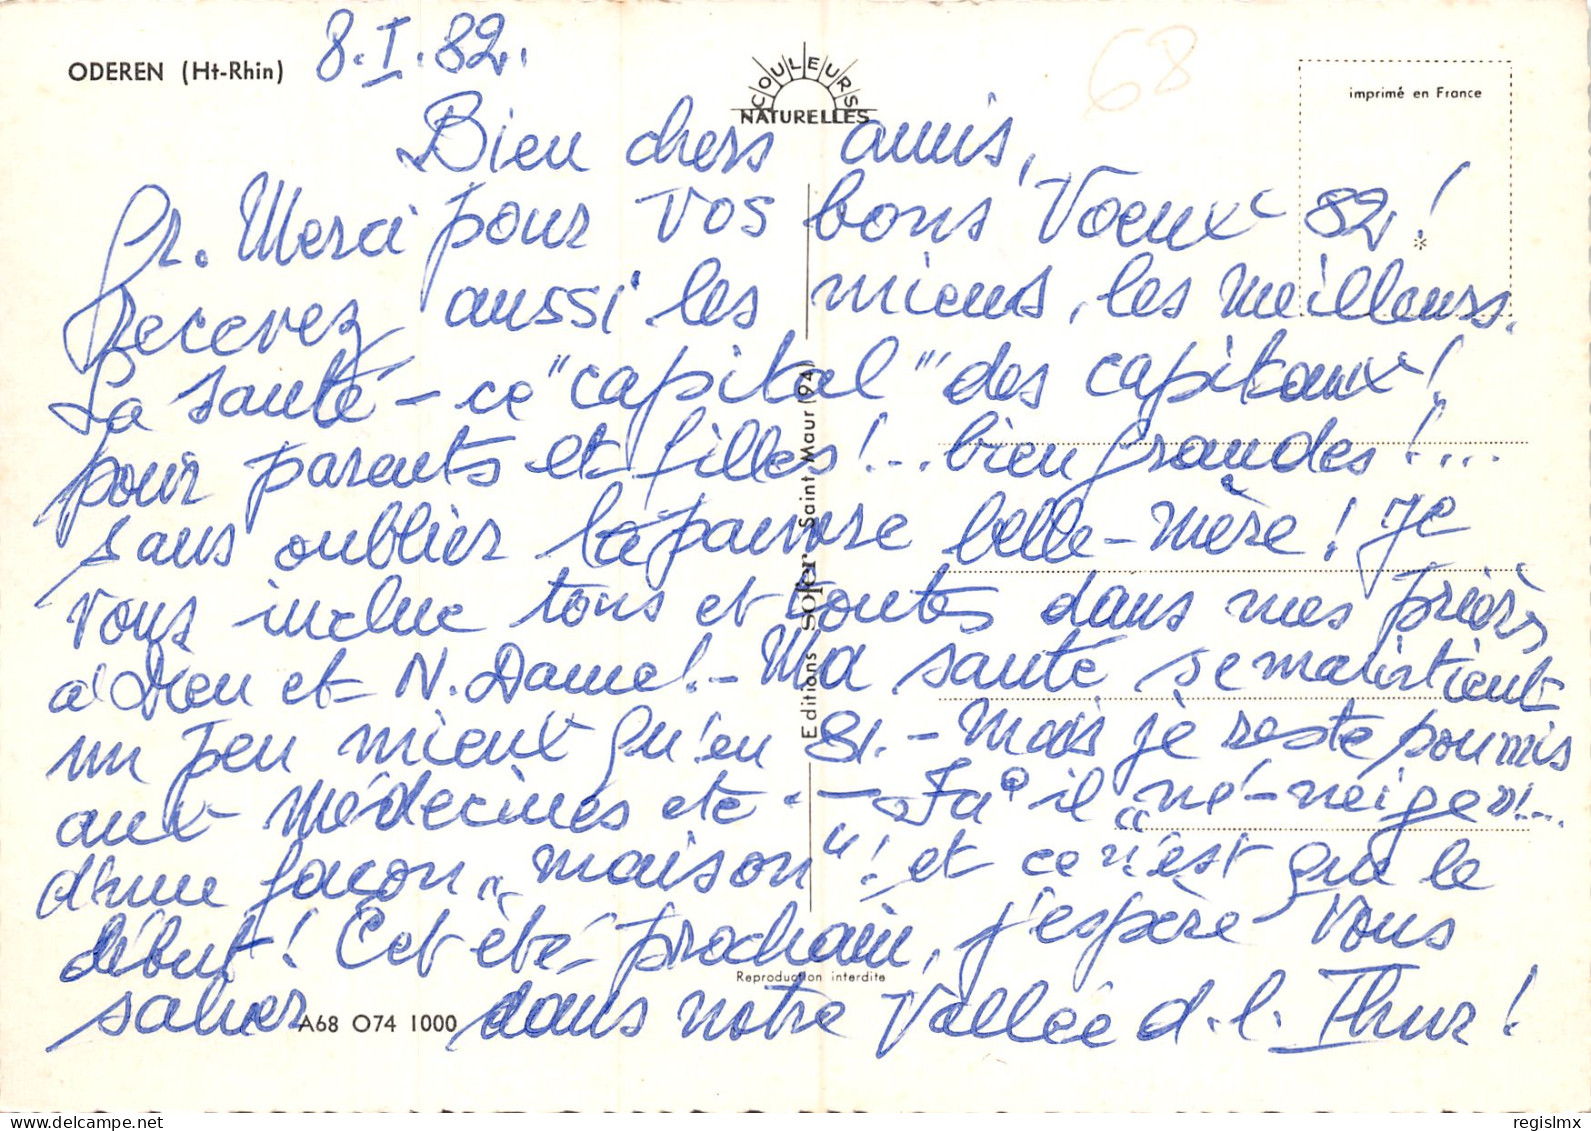 ODEREN (Ht-Rhin)
8.I.82.
68
COULEURS
NATURELLES
imprimé en France
Bien chers amis,
Gr. Merci pour vos bons Voeux 82!
Recevez aussi les miens, les meilleurs.
La santé - ce "capital" des capitaux!
pour parents et filles!... bien grandes!...
sans oublier la pauvre belle-mère! Je
vous inclue tous et toutes dans mes prières
à Dieu et N. Dame! - Ma santé se maintient
un peu mieux qu'en 81. - Mais je reste soumis
aux Médecines etc. - Ici il "né-neige"!...
d'une façon "maison"! et ce n'est que le
début! Cet été prochain, j'espère vous
saluer dans notre Vallée d. l. Thur!
Editions SOFER Saint-Maur (94)
Reproduction interdite
A68 O74 1000
regislmx